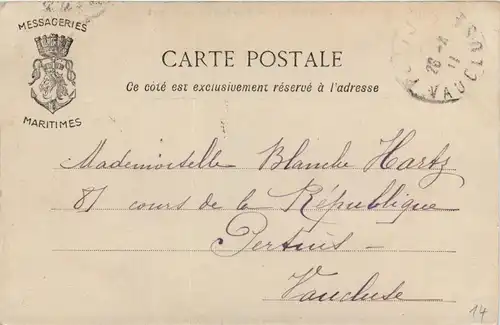 MESSAGERIES
MARITIMES
CARTE POSTALE
Ce côté est exclusivement réservé à l'adresse
26 -8
11
VAUCLUSE
Mademoiselle Blanche Hartz
81 cours de la République
Pertuis -
Vaucluse
14